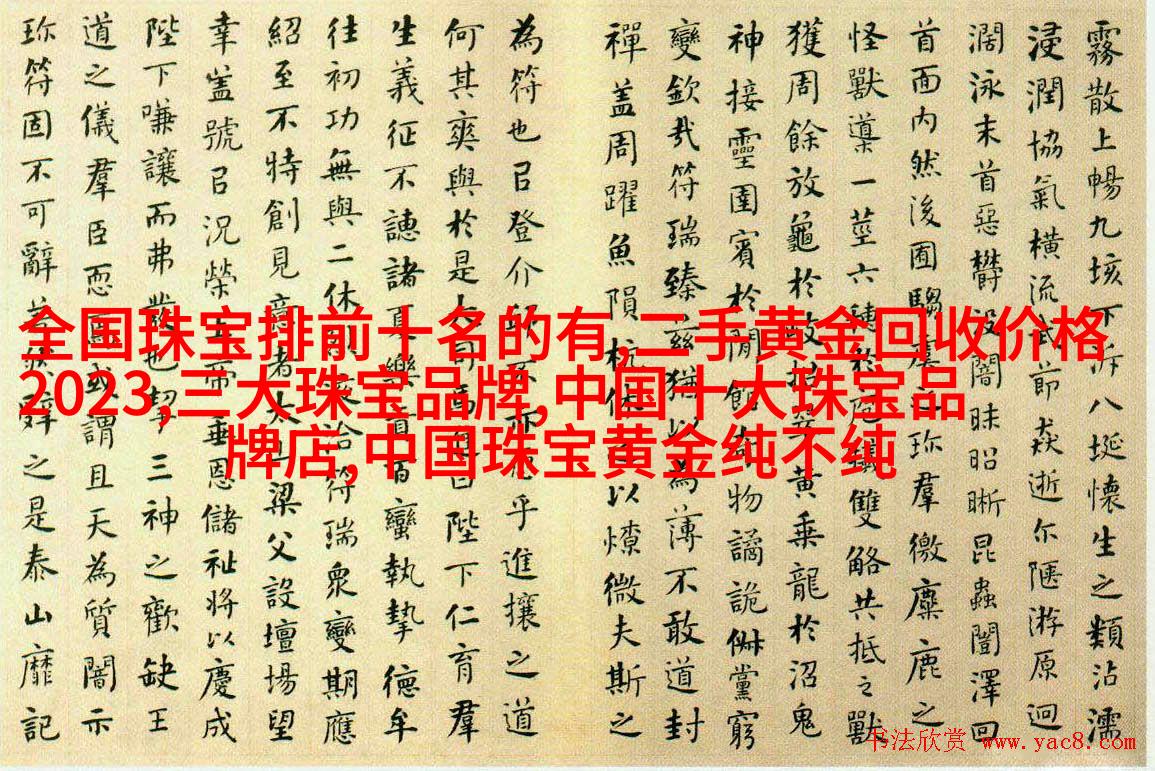 霧散上暢九垓下泝八埏懷生之類沾濡
浸潤協氣橫流武節猋逝尒陿游原迥
濶泳末首惡欝设闇昧昭晰昆蟲闓澤回
首面内然後囿騶虞之珎羣徼麋鹿之
怪獸導一莖六穗於庖犧雙觡共抵之獸
獲周餘放龜於岐招翠黃乘龍於沼鬼
神接靈圉賓於閒館奇物譎詭俶黨窮
變欽哉符瑞臻兹猶以為薄不敢道封
禪蓋周躍魚隕杭休之以燎微夫斯之
為符也㠯登介邱不亦恧乎進攘之道
何其爽與於是大司馬曰陛下仁育羣
生義征不譓諸夏樂貢百蠻執摯德牟
往初功無與二休烈浹洽符瑞衆變期應
紹至不特創見意者太山梁父設壇場望
幸蓋號㠯況榮上帝垂恩儲祉將以慶成
陛下嗛讓而弗發也挈三神之歡缺王
道之儀羣臣恧焉或謂且天為質闇示
珎符固不可辭若然辭之是泰山靡記
全国珠宝排前十名的有,二手黄金回收价格
2023,三大珠宝品牌,中国十大珠宝品
牌店,中国珠宝黄金纯不纯
书法欣赏 www.yac8.com